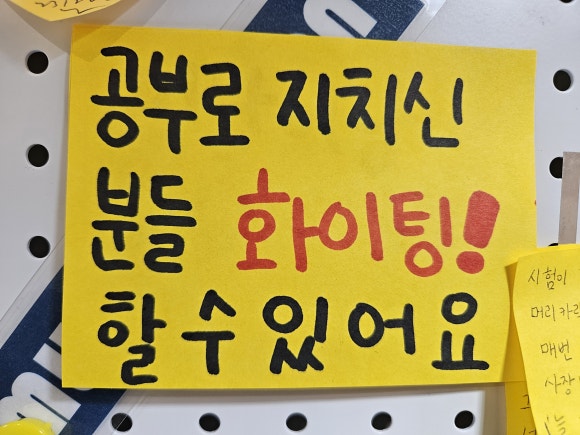 공부로 지치신
분들 화이팅!
할 수 있어요
시험이
머리카락
매번
사장